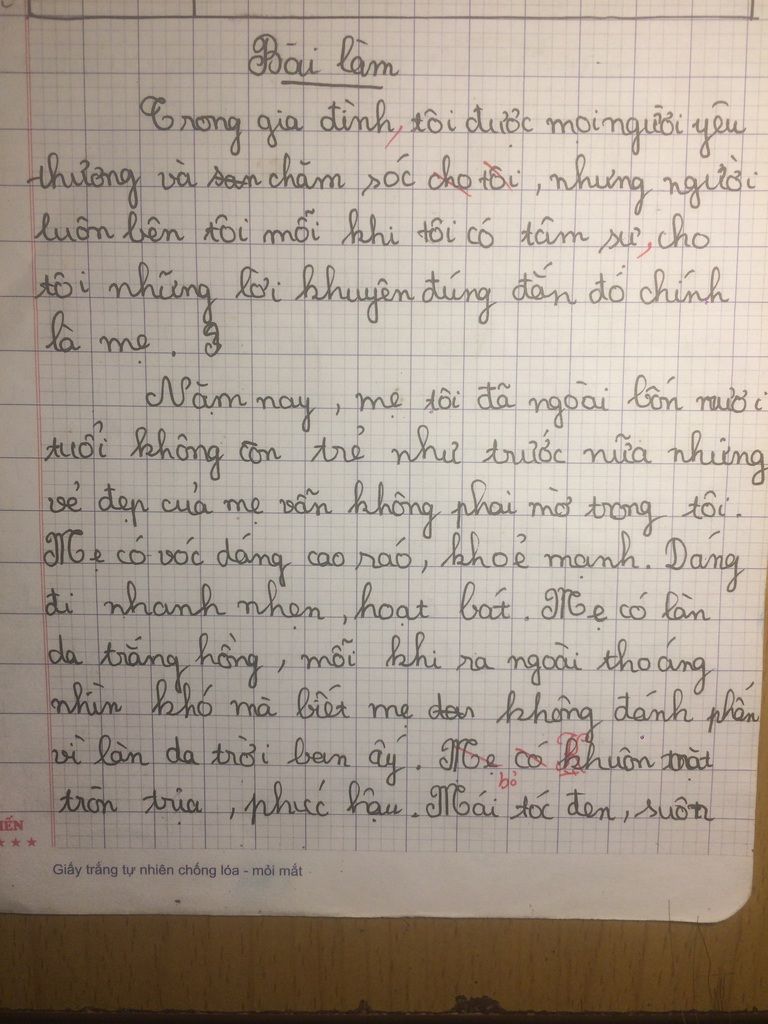 Bài làm
Trong gia đình, tôi được mọi người yêu
thương và san chăm sóc cho tôi, nhưng người
luôn bên tôi mỗi khi tôi có tâm sự, cho
tôi những lời khuyên đúng đắn đó chính
là mẹ.
Nặm nay, mẹ tôi đã ngoài bốn mươi
tuổi không còn trẻ như trước nữa nhưng
vẻ đẹp của mẹ vẫn không phai mờ trong tôi.
Mẹ có vóc dáng cao ráo, khoẻ mạnh. Dáng
đi nhanh nhẹn, hoạt bát. Mẹ có làn
da trắng hồng, mỗi khi ra ngoài thoáng
nhìn khó mà biết mẹ không đánh phấn
vì làn da trời ban ấy. Mẹ có Khuôn mặt
bỏ
tròn trịa, phúc hậu. Mái tóc đen, suôn
IẾN
★ ★ ★
Giấy trắng tự nhiên chống lóa - mỏi mắt